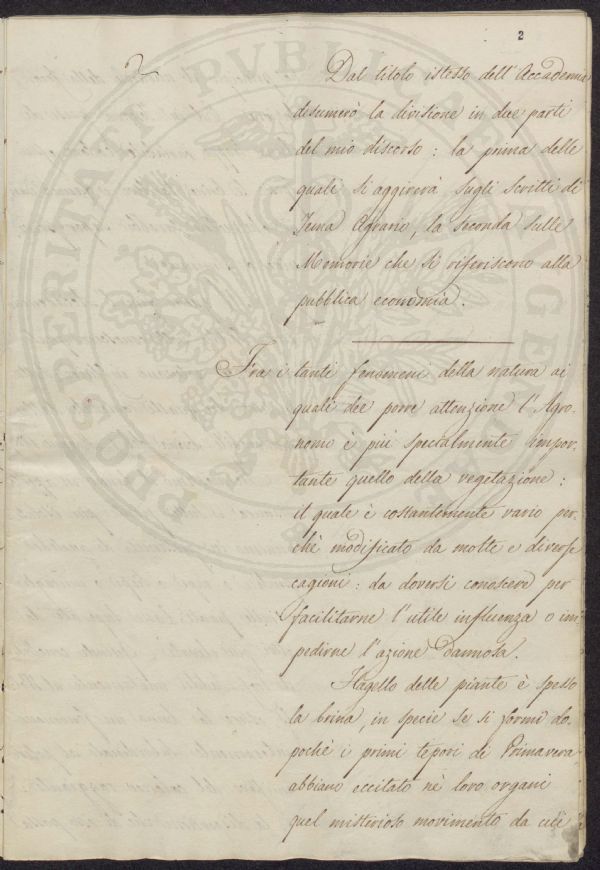 2
2
Dal titolo istesso dell'Accademia
desumerò la divisione in due parti
del mio discorso: la prima delle
quali si aggirerà sugli Scritti di
Tema Agrario, la seconda sulle
Memorie che si riferiscono alla
pubblica economia.
Fra i tanti fenomeni della natura ai
quali dee porre attenzione l'Agro-
nomo è più specialmente impor-
tante quello della vegetazione:
il quale è costantemente vario per-
chè modificato da molte e diverse
cagioni: da doversi conoscere per
facilitarne l'utile influenza o im-
pedirne l'azione dannosa.
Flagello delle piante è spesso
la brina, in specie se si formi do-
pochè i primi tepori di Primavera
abbiano eccitato nè loro organi
quel misterioso movimento da cui
PROSPERITATI PVBLICAE AVGENDAE